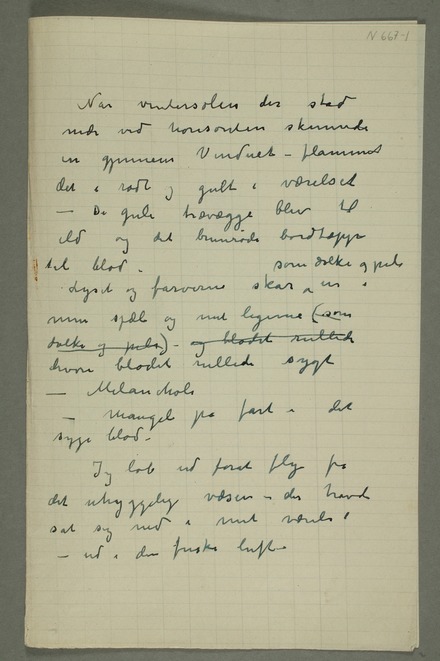 N 667-1
Når vintersolen der stod
nede ved horisonten skinnede
in gjennem Vinduet – flammet
det i rødt og gult i værelset
– De gule trævægge blev til
ild og det brunrøde bordtæppe
til blod –
som dolke og pile
Lyset og farverne skar in i
min sjæl og mit legeme (som
dolke og pile) – og blodet rullede
hvori blodet rullede sygt
– Melancholi
– mangel på fart i det
syge blod –
Jeg løb ud forat fly fra
det uhyggelige væsen – der havde
sat sig ned i mit værelse
– ud i den friske luft –